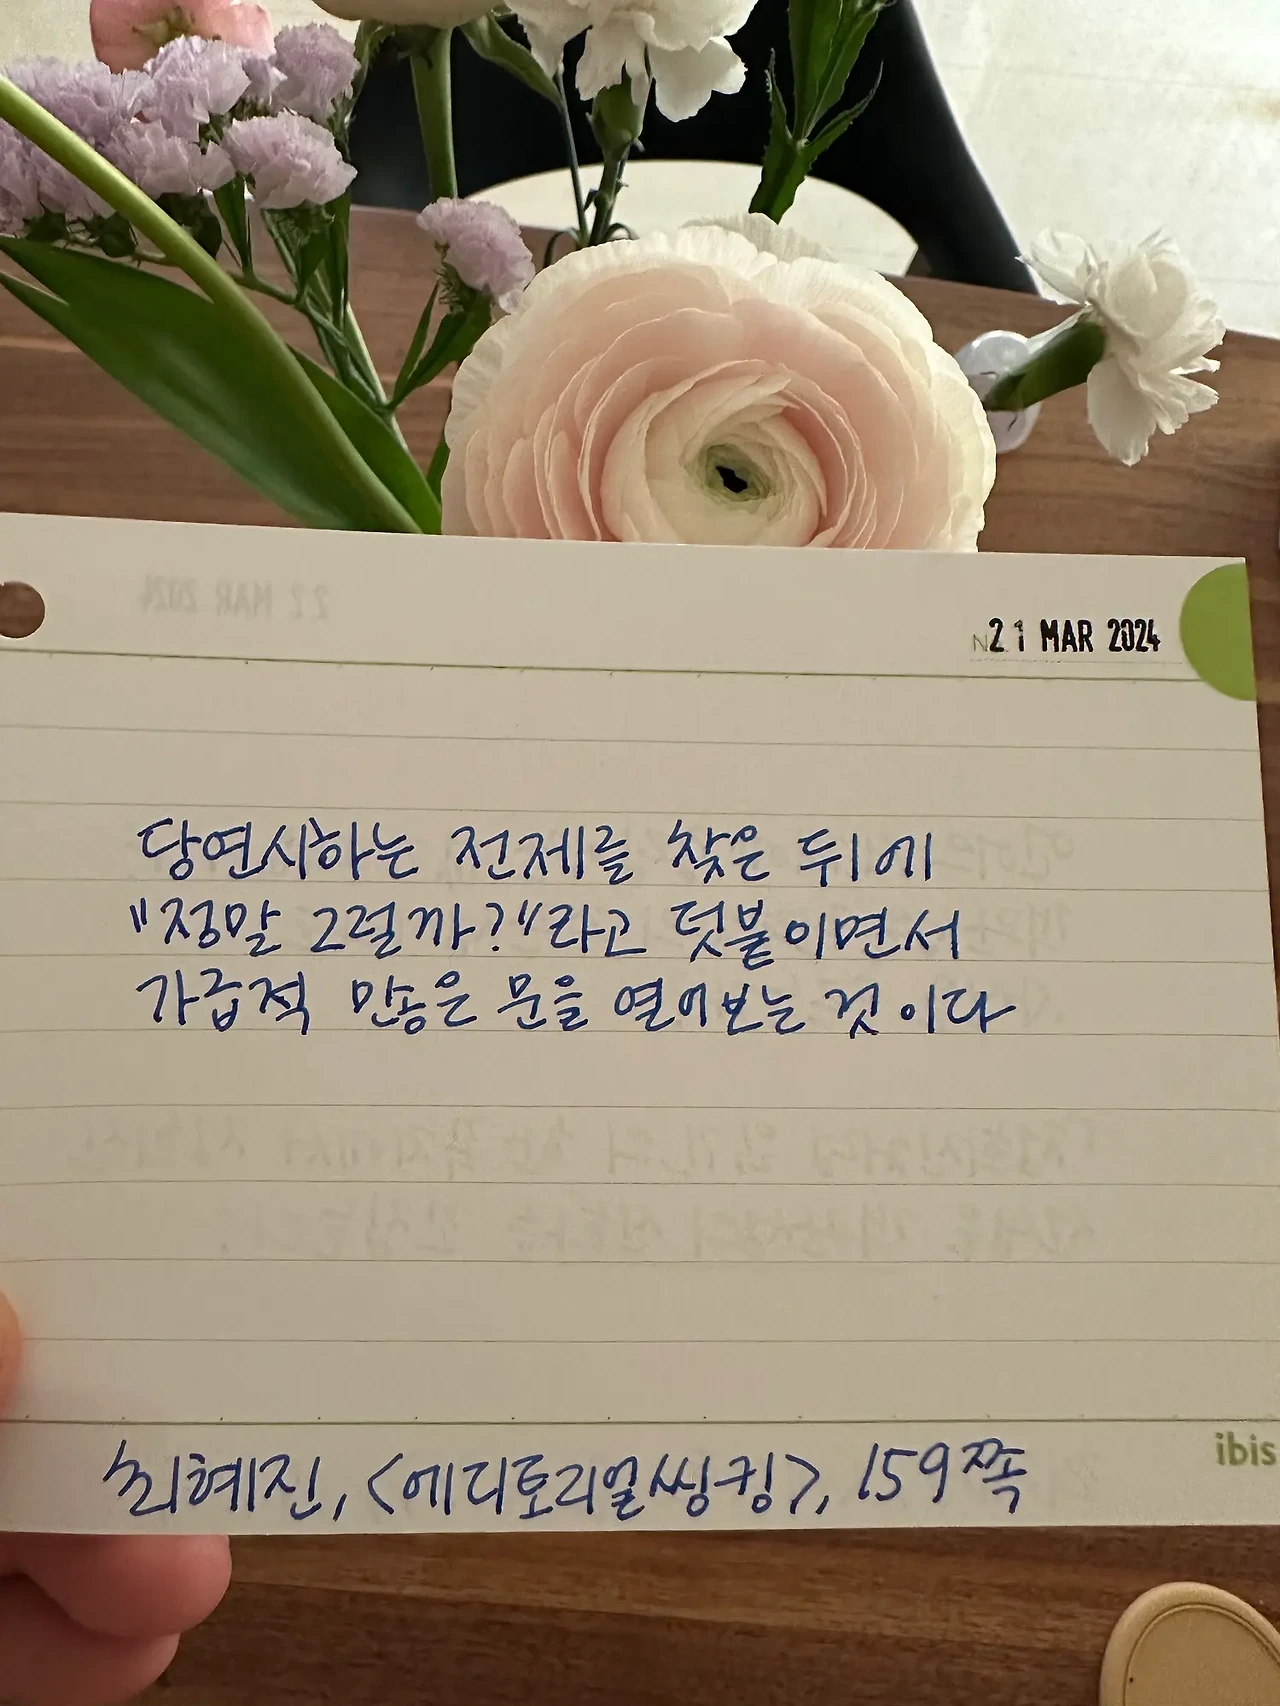 21 MAR 2024
당연시하는 전제를 찾은 뒤에
"정말 그럴까?"라고 덧붙이면서
가급적 많은 문을 열어보는 것이다
최혜진, <에디토리얼씽킹>, 159쪽
ibis